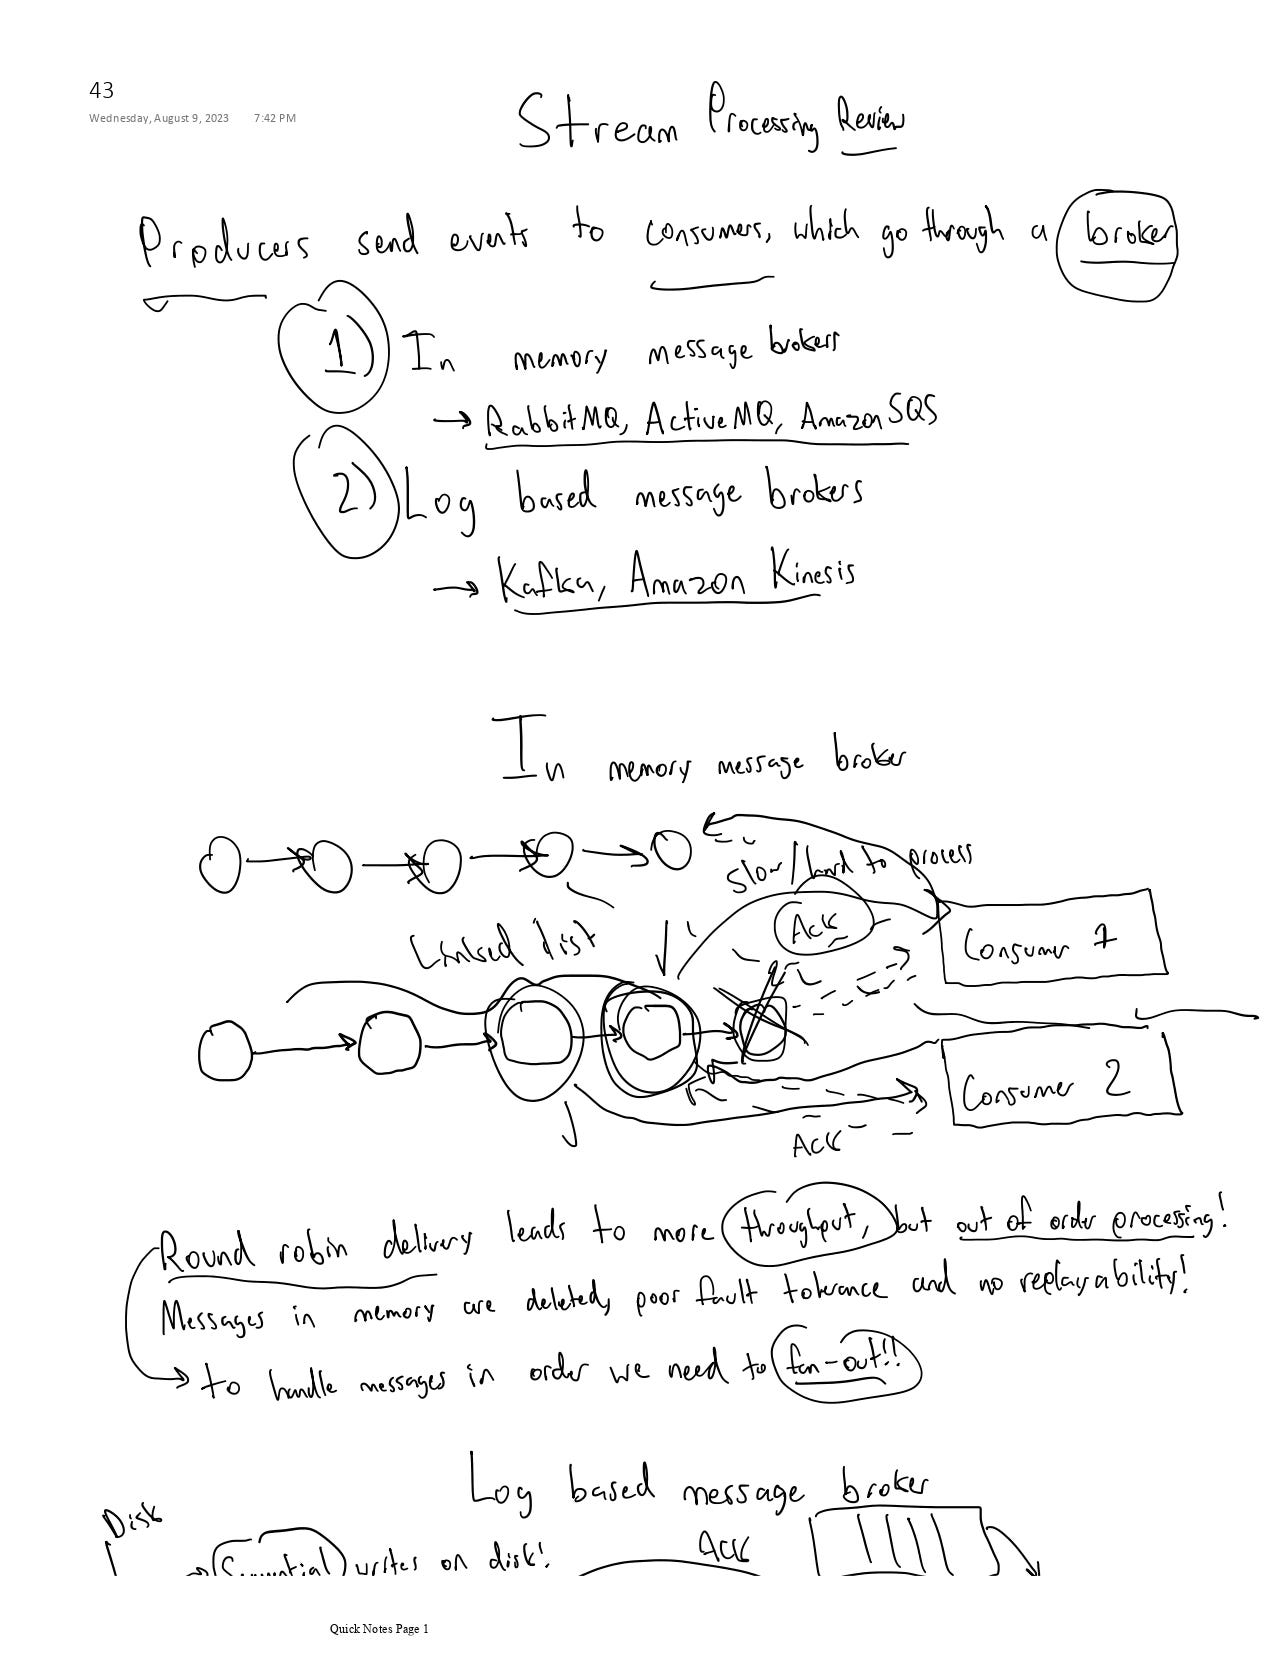 43
Wednesday, August 9, 2023 7:42 PM
Stream Processing Review
Producers send events to consumers, which go through a broker
1) In memory message brokers
→ RabbitMQ, ActiveMQ, Amazon SQS
2) Log based message brokers
→ Kafka, Amazon Kinesis
In memory message broker
slow/hard to process
Ack
Consumer 1
Linked list
Consumer 2
Ack
Round robin delivery leads to more throughput, but out of order processing!
Messages in memory are deleted, poor fault tolerance and no replayability!
→ to handle messages in order we need to fan-out!!
Log based message broker
Disk
Ack
→ Sequential writes on disk!
Quick Notes Page 1